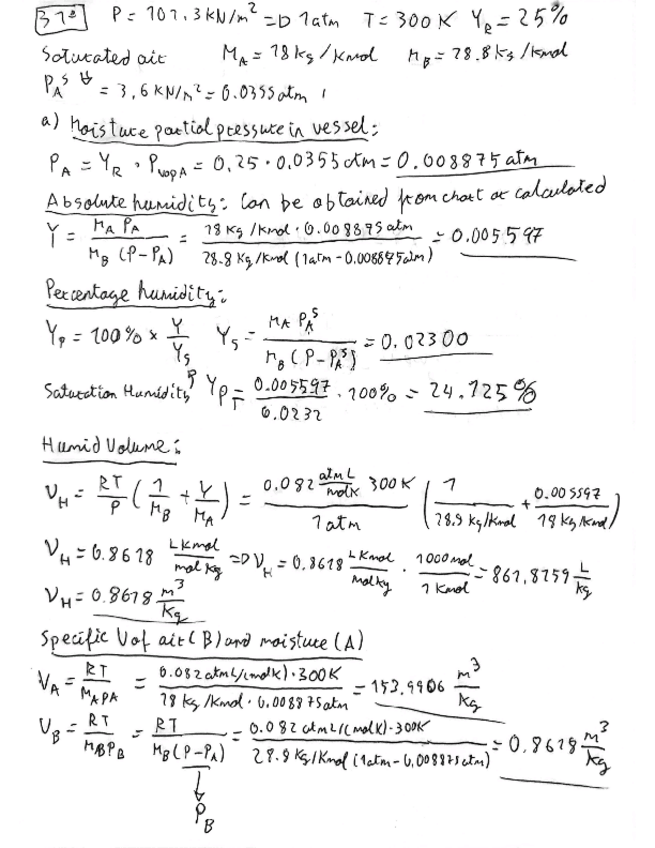 37º P = 101.3 kN/m² => 1 atm T = 300 K Y_R = 25%
Saturated air M_A = 18 kg/kmol M_B = 28.8 kg/kmol
P_A^S ⇓ = 3,6 kN/m² = 0.0355 atm
a) Moisture partial pressure in vessel:
P_A = Y_R · P_vap A = 0,25 · 0.0355 atm = 0.008875 atm
Absolute humidity: Can be obtained from chart or calculated
Y = M_A P_A / M_B (P-P_A) = 18 kg/kmol · 0.008875 atm / 28.8 kg/kmol (1atm - 0.008875atm) = 0.005597
Percentage humidity:
Y_P = 100% × Y / Y_S Y_S = M_A P_A^S / M_B (P-P_A^S) = 0.02300
Saturation Humidity Y_P = 0.005597 / 0.0232 · 100% = 24.125%
Humid Volume:
V_H = RT / P (1 / M_B + Y / M_A) = 0.082 atm L / mol K 300 K / 1 atm (1 / 28.9 kg/kmol + 0.005597 / 18 kg/kmol)
V_H = 0.8618 L kmol / mol kg => V_H = 0.8618 L kmol / mol kg · 1000 mol / 1 kmol = 861,8159 L / kg
V_H = 0.8618 m³ / kg
Specific V of air (B) and moisture (A)
V_A = RT / M_A P_A = 0.082 atm L/(mol K) · 300K / 18 kg/kmol · 0,008875 atm = 153,9906 m³ / kg
V_B = RT / M_B P_B = RT / M_B (P-P_A) = 0.082 atm L/(mol K) · 300K / 28.8 kg/kmol (1atm - 0,008875 atm) = 0,8618 m³ / kg
↓
P_B